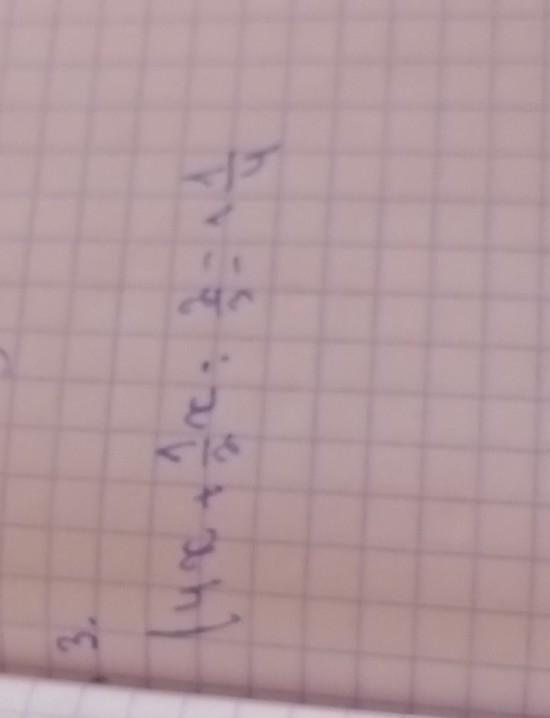 3.
(4x + 1/2 x : 2/3 = 1 1/4